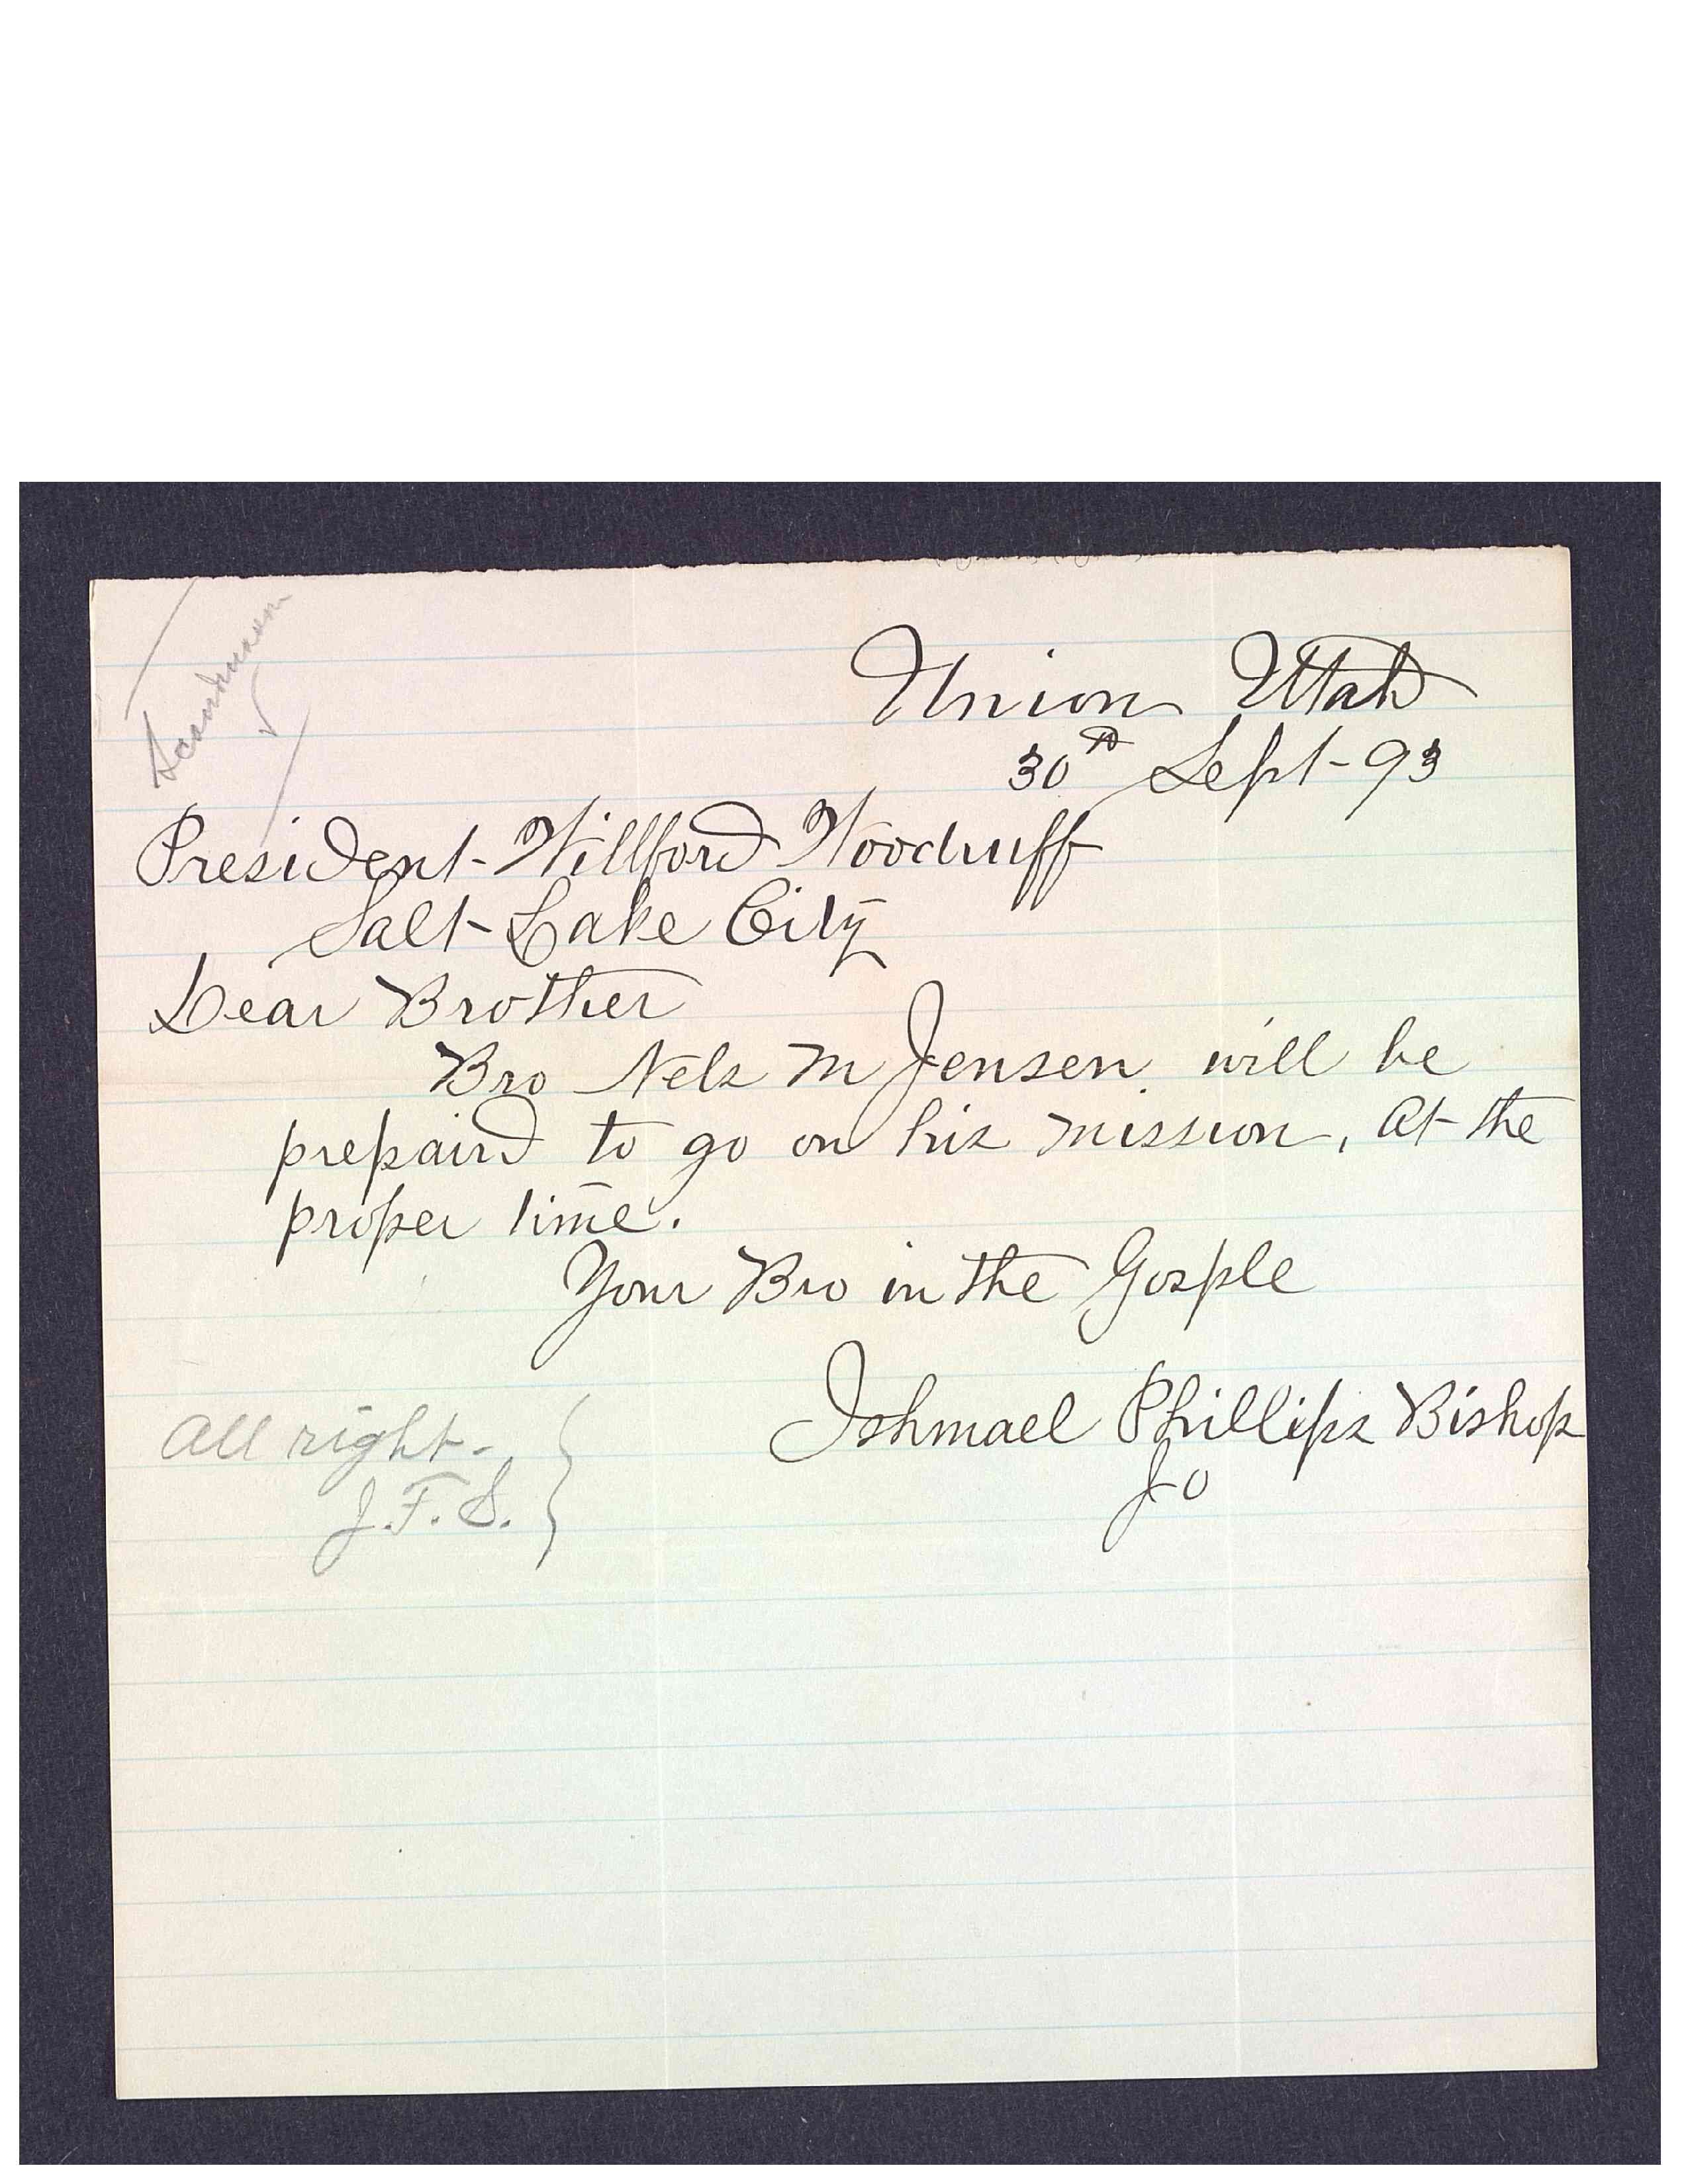 Scandinavian
Union Utah
30th Sept - 93
President Willford Woodruff
Salt Lake City
Dear Brother
Bro Nels M Jensen will be
prepaird to go on his mission, at the
proper time.
Your Bro in the Gosple
Ishmael Phillips Bishop
All right -
J.F.S.